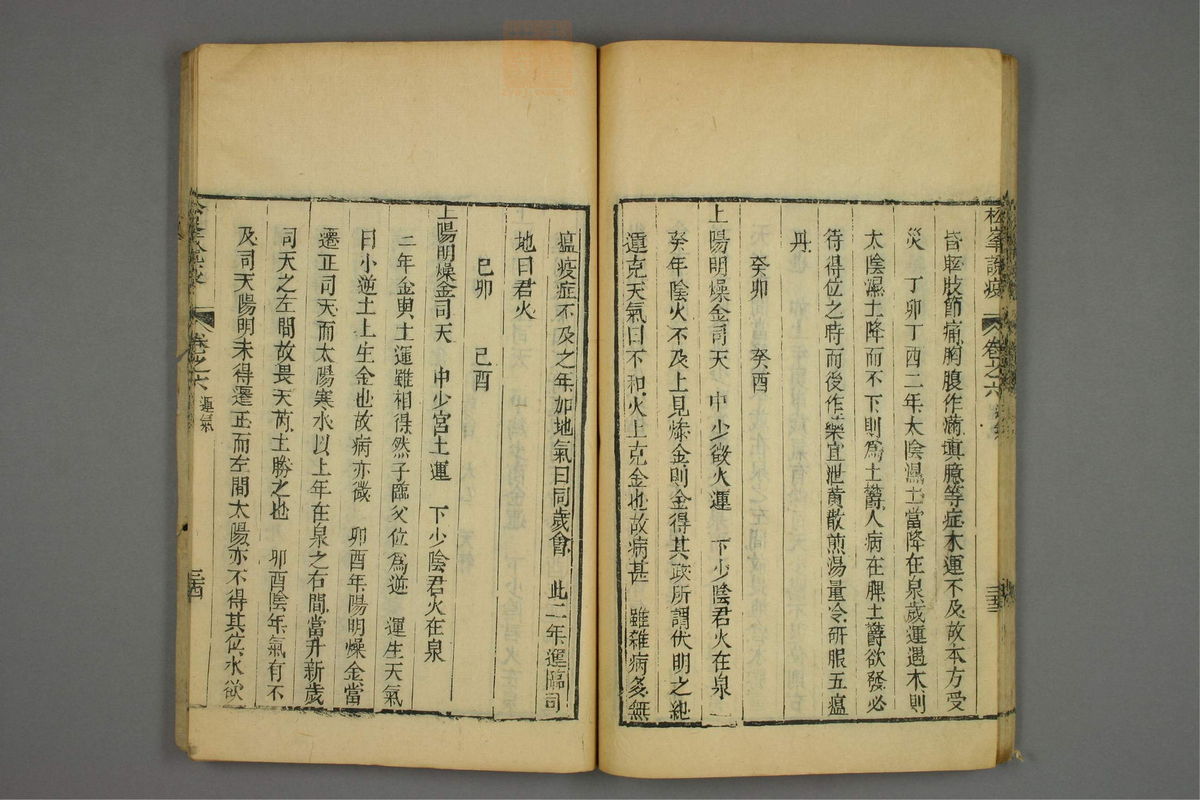 松峯說疫 卷之六
昏眩肢節痛胸腹作滿塡臆等症木運不及故本方受
災 丁卯丁酉二年太陰濕土當降在泉歲運遇木則
太陰濕土降而不下則爲土欝人病在脾土欝欲發必
待得位之時而後作藥宜泄黄散煎湯量冷研服五瘟
丹
癸卯 癸酉
上陽明燥金司天 中少徵火運 下少陰君火在泉 二
癸年陰火不及上見燥金則金得其政所謂伏明之紀
運克天氣曰不和火上克金也故病甚 雖雜病多無
瘟疫症不及之年加地氣曰同歲會 此二年運臨司
地曰君火
己卯 己酉
上陽明燥金司天 中少宮土運 下少陰君火在泉
二年金與土運雖相得然子臨父位爲逆 運生天氣
曰小逆土上生金也故病亦微 卯酉年陽明燥金當
遷正司天而太陽寒水以上年在泉之右間當升新歲
司天之左間故畏天芮土勝之也 卯酉陰年氣有不
及司天陽明未得遷正而左間太陽亦不得其位水欲
卷之六 運氣 三四